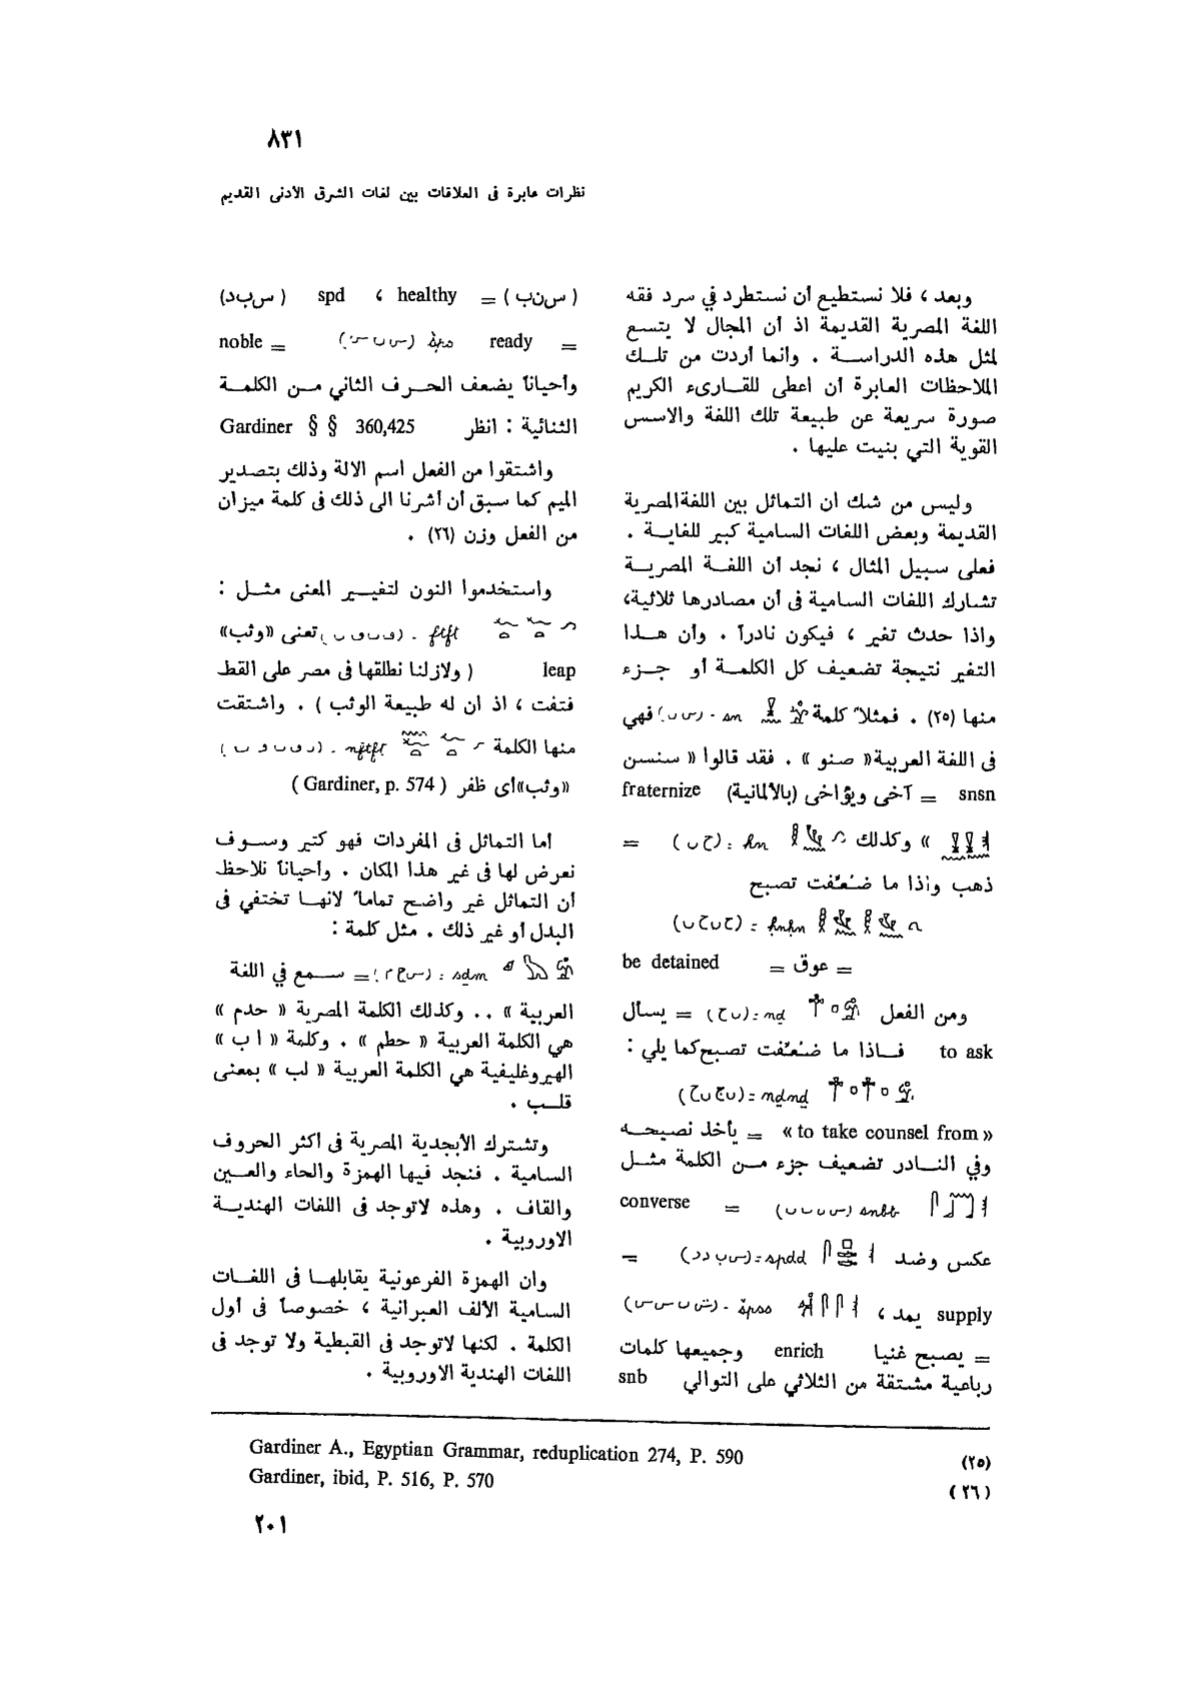 ٨٣١
نظرات عابرة فى العلاقات بين لغات الشرق الأدنى القديم
وبعد ، فلا نستطيع أن نستطرد في سرد فقه
اللغة المصرية القديمة اذ أن المجال لا يتسع
لمثل هذه الدراسة . وانما أردت من تلك
الملاحظات العابرة أن اعطى للقارىء الكريم
صورة سريعة عن طبيعة تلك اللغة والاسس
القوية التي بنيت عليها .
وليس من شك ان التماثل بين اللغة المصرية
القديمة وبعض اللغات السامية كبير للغاية .
فعلى سبيل المثال ، نجد أن اللغة المصرية
تشارك اللغات السامية فى أن مصادرها ثلاثية،
واذا حدث تغير ، فيكون نادراً . وأن هذا
التغير نتيجة تضعيف كل الكلمة أو جزء
منها (٢٥) . فمثلاً كلمة sn . (سن) فهي
فى اللغة العربية « صنو » . فقد قالوا « سنسن
snsn = آخى ويؤاخى (بالألمانية) fraternize
» وكذلك ḥn : (حن) =
ذهب واذا ما ضُعِّفت تصبح
ḥnḥn : (حنحن)
= عوق = be detained
ومن الفعل nḏ : (نج) = يسأل
to ask فاذا ما ضُعِّفت تصبح كما يلي :
nḏnḏ : (نجنج)
« to take counsel from » = يأخذ نصيحه
وفي النادر تضعيف جزء من الكلمة مثل
snbb (سنبب) = converse
عكس وضد spdd : (سبدد) =
supply يمد ، špss . (شبسس)
= يصبح غنيا enrich وجميعها كلمات
رباعية مشتقة من الثلاثي على التوالي snb
( سنب ) = healthy ، spd ( سبد)
= ready šps = noble
وأحياناً يضعف الحرف الثاني من الكلمة
الثنائية : انظر Gardiner § § 360,425
واشتقوا من الفعل اسم الالة وذلك بتصدير
الميم كما سبق أن أشرنا الى ذلك فى كلمة ميزان
من الفعل وزن (٢٦) .
واستخدموا النون لتغيير المعنى مثل :
ftft . (فتفت) تعنى «وثب»
leap ( ولازلنا نطلقها فى مصر على القط
فتفت ، اذ ان له طبيعة الوثب ) . واشتقت
منها الكلمة nftft . (نفتفت)
«وثب» أى ظفر ( Gardiner, p. 574 )
أما التماثل فى المفردات فهو كثير وسوف
نعرض لها فى غير هذا المكان . وأحياناً نلاحظ
أن التماثل غير واضح تماماً لانها تختفي فى
البدل أو غير ذلك . مثل كلمة :
sḏm : (سجم) = سمع في اللغة
العربية » .. وكذلك الكلمة المصرية « حدم »
هي الكلمة العربية « حطم » . وكلمة « ا ب »
الهيروغليفية هي الكلمة العربية « لب » بمعنى
قلب .
وتشترك الأبجدية المصرية فى اكثر الحروف
السامية . فنجد فيها الهمزة والحاء والعين
والقاف . وهذه لاتوجد فى اللغات الهندية
الاوروبية .
وان الهمزة الفرعونية يقابلها فى اللغات
السامية الألف العبرانية ، خصوصاً فى أول
الكلمة . لكنها لاتوجد فى القبطية ولا توجد فى
اللغات الهندية الاوروبية .
(٢٥) Gardiner A., Egyptian Grammar, reduplication 274, P. 590
(٢٦) Gardiner, ibid, P. 516, P. 570
٢٠١